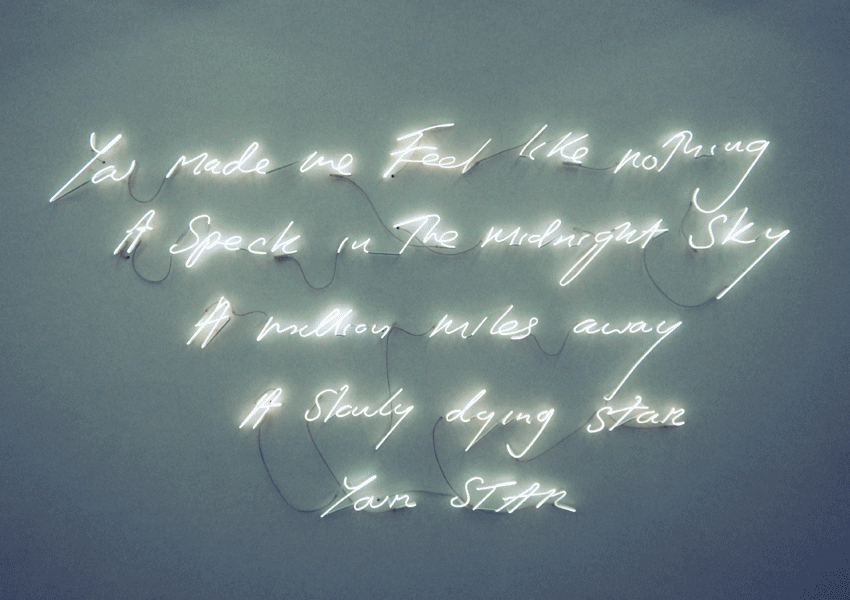 You made me Feel like nothing
A Speck in The midnight Sky
A million miles away
A Slowly dying star
Your STAR